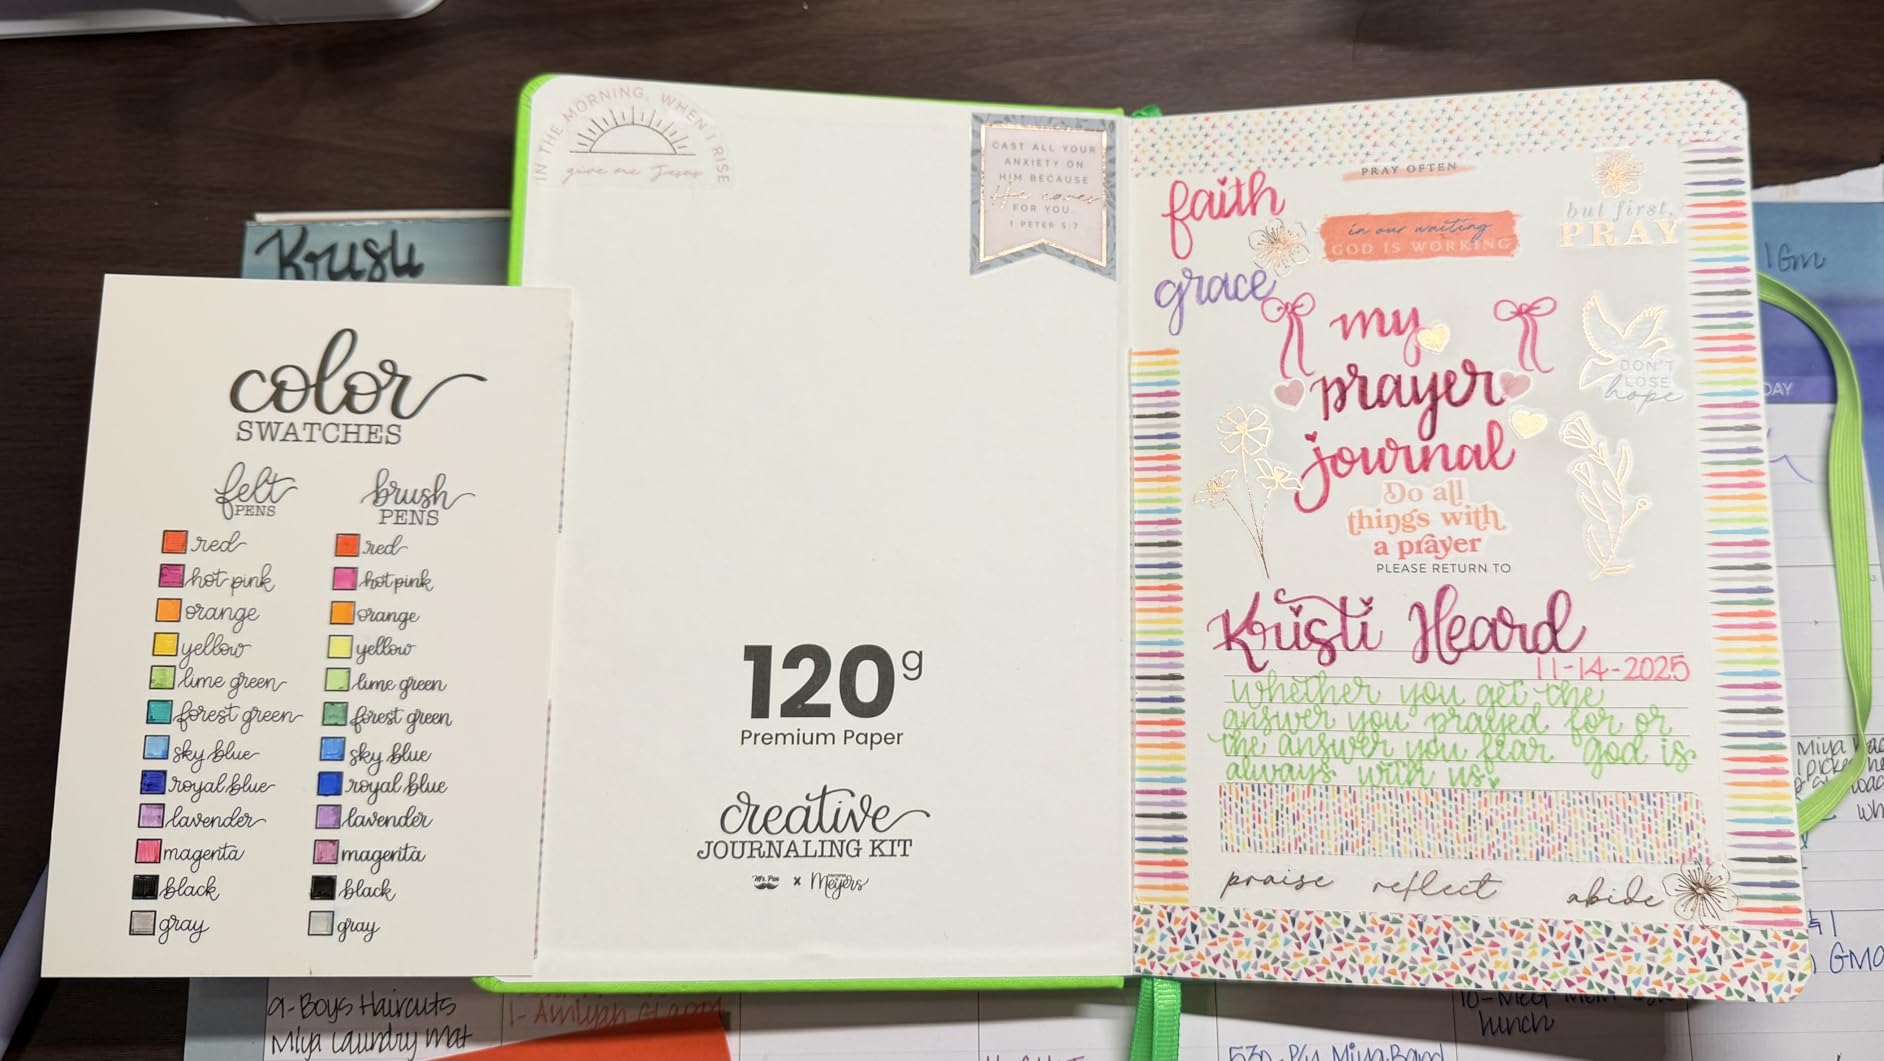 Kristi
color
SWATCHES
felt
PENS
brush
PENS
red
red
hot pink
hot pink
orange
orange
yellow
yellow
lime green
lime green
forest green
forest green
sky blue
sky blue
royal blue
royal blue
lavender
lavender
magenta
magenta
black
black
gray
gray
IN THE MORNING, WHEN I RISE
give me Jesus
CAST ALL YOUR
ANXIETY ON
HIM BECAUSE
He cares
FOR YOU.
1 PETER 5:7
120g
Premium Paper
creative
JOURNALING KIT
Mr. Pen x Meyers
PRAY OFTEN
faith
in our waiting
GOD IS WORKING
but first,
PRAY
grace
my
prayer
journal
DON'T
LOSE
hope
Do all
things with
a prayer
PLEASE RETURN TO
Kristi Heard
11-14-2025
Whether you get the
answer you prayed for or
the answer you fear god is
always with us
praise reflect abide
1 Gm
DAY
Miya
& 1
GMa
9-Boys Haircuts
Miya Laundry Mat
1-
lunch
530- P/u Miya Band